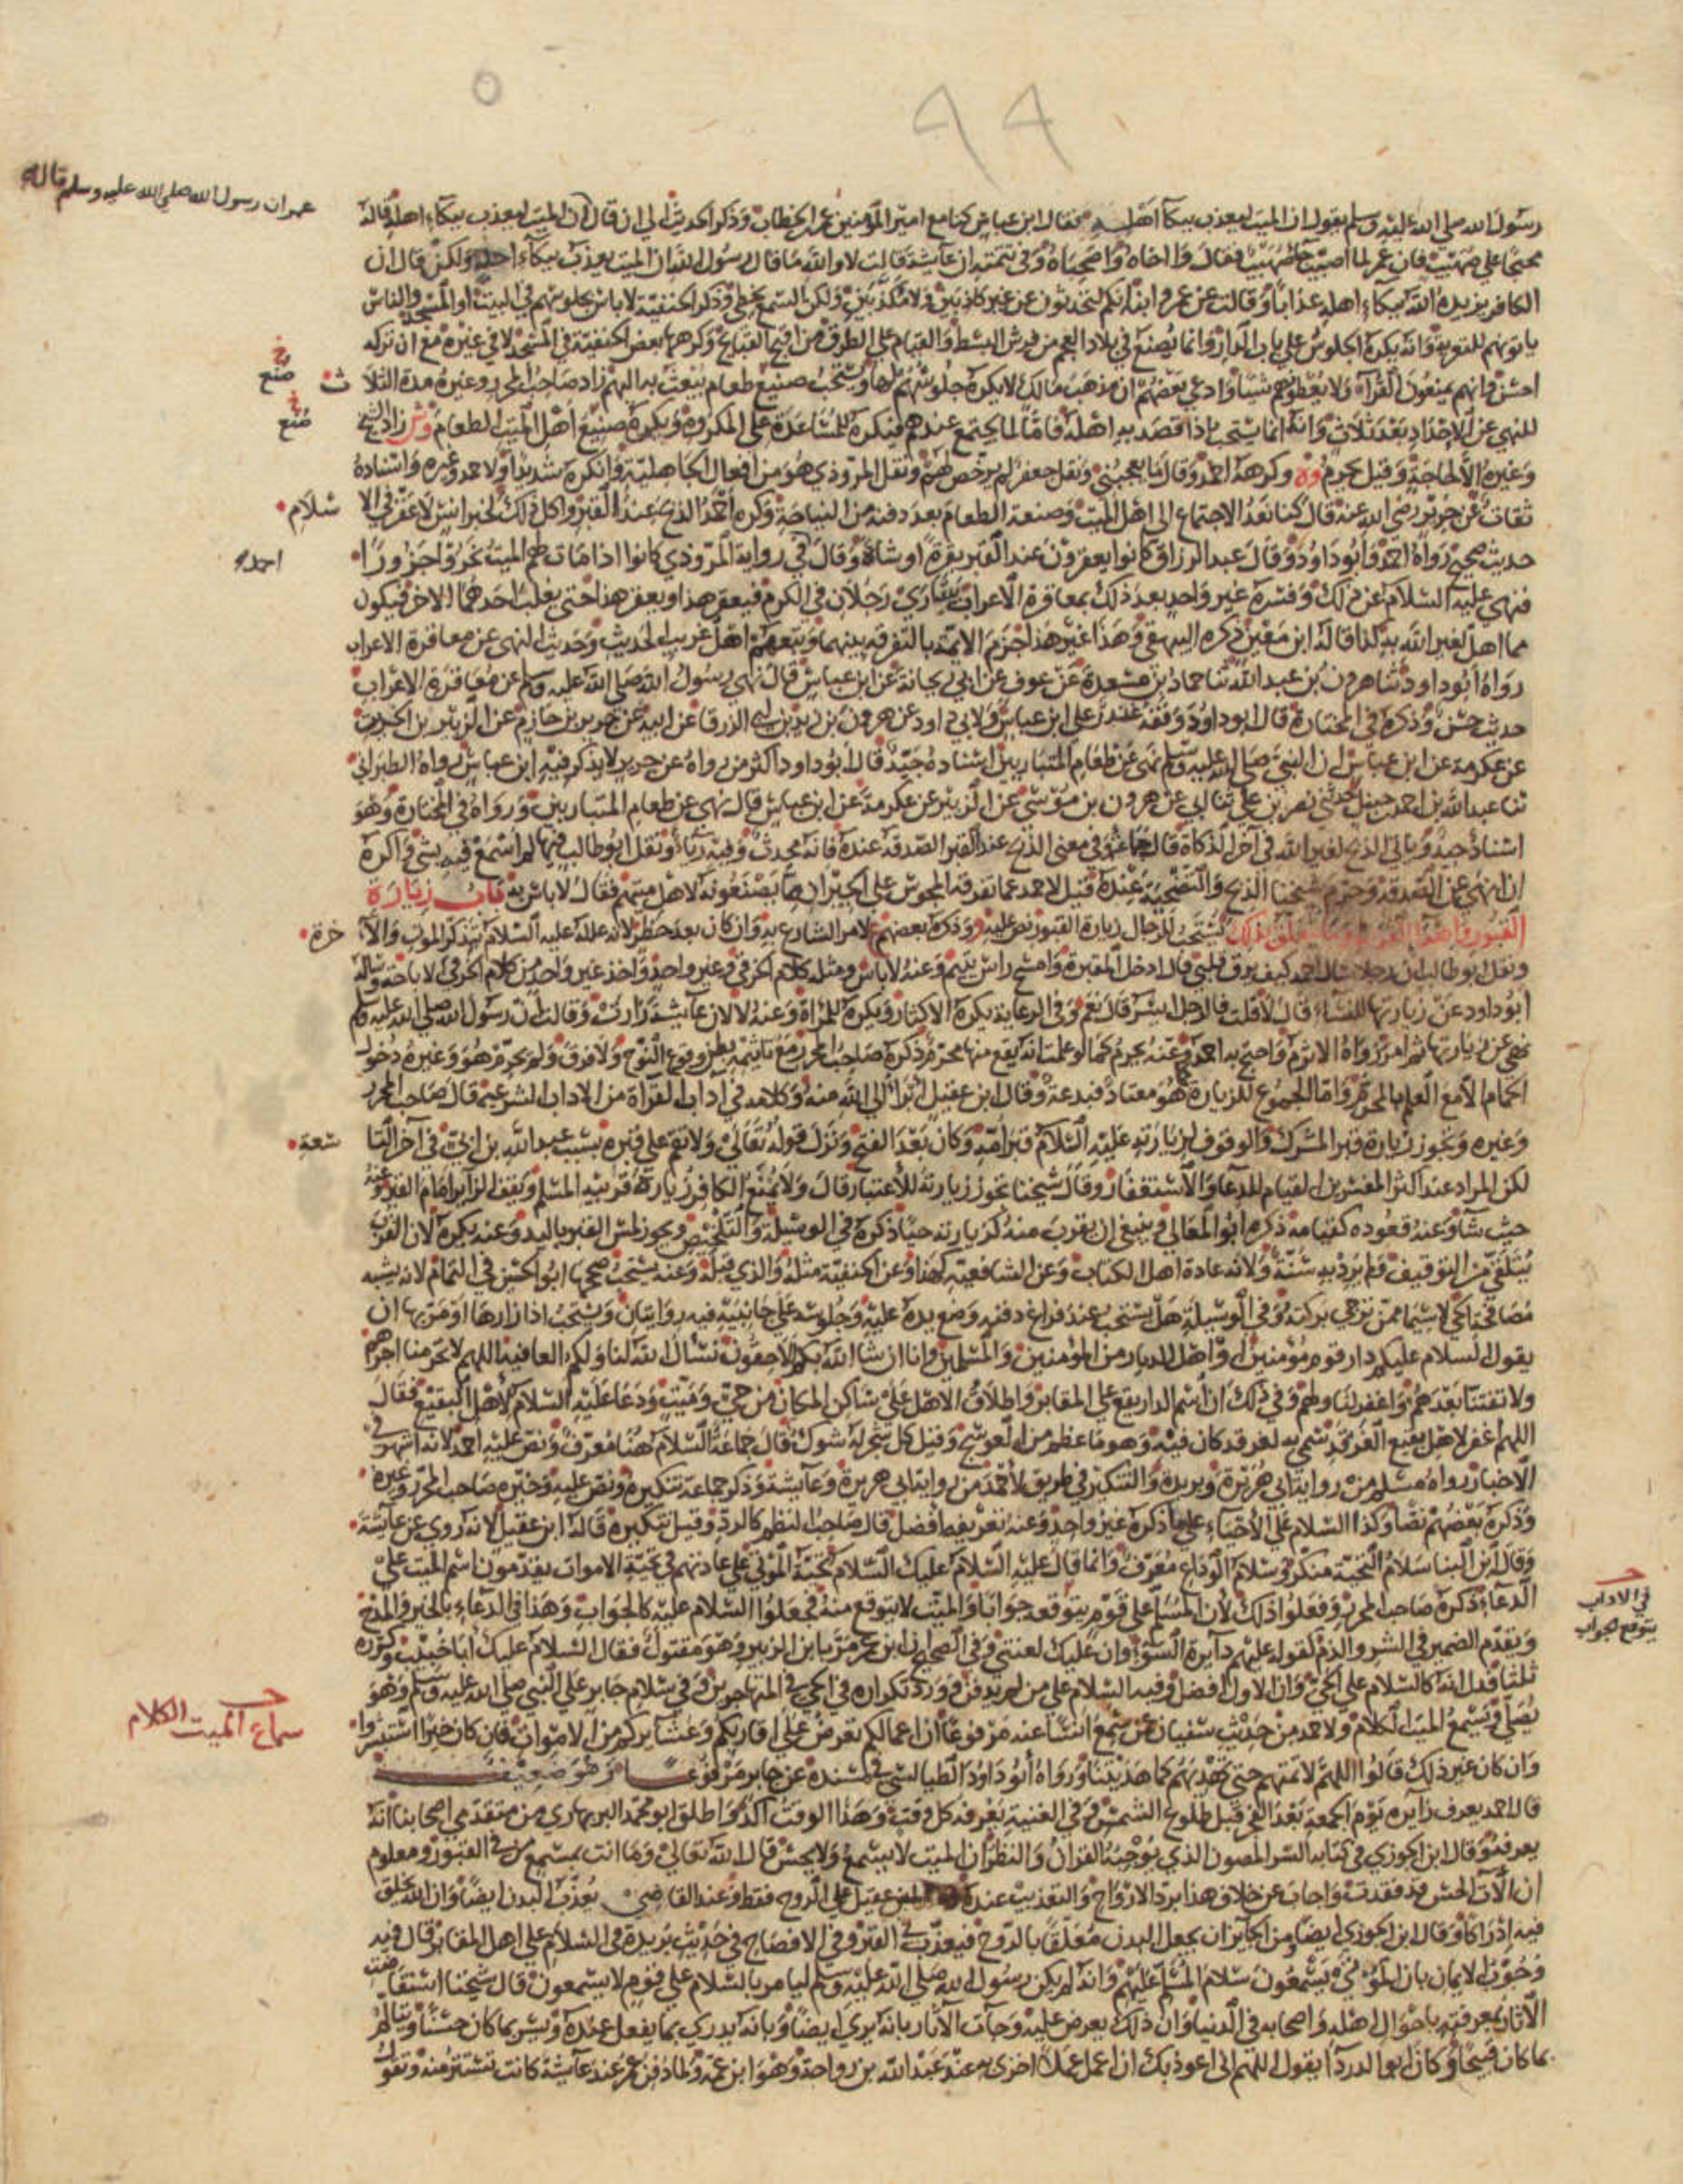 ٩٩
عمر ان رسول الله صلى الله عليه وسلم قاله
رسول الله صلى الله عليه وسلم يقول ان الميت ليعذب ببكآ اهله فقال ابن عباس كنا مع امير المؤمنين عمر بن الخطاب وذكر الحديث الى ان قال ان الميت ليعذب ببكاء اهله قاله
محتجا على صهيب فان عمر لما اصيب جآ صهيب فقال وا اخاه وا صاحباه وفي تتمته ان عآيشة قالت لا والله ما قال رسول الله ان الميت يعذب ببكآء احد ولكن قال ان
الكافر يزيده الله ببكآء اهله عذابا وقالت عن عمر وابنه انكم لتحدثون عن غير كاذبين ولا مكذبين ولكن السمع يخطئ وذكر الحنفية لا باس بجلوسهم في البيت او المسجد والناس
ياتونهم للتعزية وانه يكره الجلوس على باب الدار وانما يصنع في بلاد العجم من فرش البسط والقيام على الطرق من اقبح القبائح وكرهها بعض الحنفية في المسجد لا في غيره مع ان تركه
احسن وانهم يمنعون القرآء ولا يعطوهم شيئا وادعى بعضهم ان مذهب مالك لا يكره جلوسهم لها ويستحب صنيع طعام يبعث به اليهم زاد صاحب المحرر وغيره مدة الثلا
ث
صنع
للنهي عن الاحداد بعد ثلاث وانه انما يستحب اذا قصد به اهله فاما لما يجتمع عندهم فيكره للمساعدة على المكروه ويكره صنيع اهل الميت الطعام وش زاد الشيخ
صنع
وغيره الا لحاجة وقيل يحرم وه وكرهه احمد وقال ما يعجبني ونقل جعفر لم يرخص لهم ونقل المروذي هو من افعال الجاهلية وانكره شديدا ولاحمد وغيره واسناده
ثقات عن جرير رضى الله عنه قال كنا نعد الاجتماع الى اهل الميت وصنعة الطعام بعد دفنه من النياحة وكره احمد الذبح عند القبر واكل ذلك لخبر انس لا عقر في الا
سلام
حديث صحيح رواه احمد وابو داود وقال عبد الرزاق كانوا يعقرون عند القبر بقرة او شاة وقال في رواية المروذي كانوا اذا مات لهم الميت نحروا جزورا
احمد
فنهى عليه السلام عن ذلك وفسره غير واحد بعد ذلك بمعاقرة الاعراب يتبارى رجلان في الكرم فيعقر هذا ويعقر هذا حتى يغلب احدهما الاخر فيكون
مما اهل لغير الله به كذا قاله ابن معين ذكره البيهقي وهذا غير هذا جزم الائمة بالتفرقة بينهما وتبعهم اهل غريب الحديث وحديث النهى عن معاقرة الاعراب
رواه ابو داود ثنا هرون بن عبد الله ثنا حماد بن مسعدة عن عوف عن ابي ريحانة عن ابن عباس قال نهى رسول الله صلى الله عليه وسلم عن معاقرة الاعراب
حديث حسن وذكره في المختارة قال ابو داود وقفه غندر على ابن عباس ولابي داود عن هرون بن زيد بن ابي الزرقا عن ابيه عن جرير بن حازم عن الزبير بن الخريت
عن عكرمة عن ابن عباس ان النبي صلى الله عليه وسلم نهى عن طعام المتباريين اسناده جيد قال ابو داود اكثر من رواه عن جرير لا يذكر فيه ابن عباس رواه الطبراني
ثنا عبد الله بن احمد بن حنبل حدثني نصر بن علي ثنا ابي عن هرون بن موسى عن الزبير عن عكرمة عن ابن عباس قال نهى عن طعام المتباريين ورواه في المختارة وهو
اسناد جيد وياتي الذبح لغير الله في آخر الذكاة قال جماعة وفي معنى الذبح عند القبر الصدقة عنده فانه محدث وفيه ريآء ونقل ابو طالب فيها لم اسمع فيه بشي واكره
ان انهى عن الصدقة وحرم شيخنا الذبح والتضحية عنده قيل لاحمد عما تقدمه المجوس على الجيران مما يصنعونه لاهل ميتهم فقال لا باس به فصل زيارة
القبور واهدآ القرب وما يتعلق بذلك تستحب للرجال زيارة القبور نص عليه و وذكره بعضهم ع لامر الشارع به وان كان بعد حظر لانه علله عليه السلام بتذكر الموت والآ
خرة
ونقل ابو طالب ان رجلا سال احمد كيف يرق قلبي قال ادخل المقبرة وامسح راس يتيم وعنه لا باس ومثله كلام الخرقي وغير واحد واخذ غير واحد من كلام الخرقي الاباحة وساله
ابو داود عن زيارتها للنساء قال لا قلت فالرجل ايسر قال نعم وفي الرعاية يكره الاكثار ويكره للمراة وعنه لا لان عآيشة زارت وقالت ان رسول الله صلى الله عليه وسلم
نهى عن زيارتها ثم امر رواه الاثرم واحتج به احمد وعنه يحرم كما لو علمت انه يقع منها محرم ذكره صاحب المحرر مع تاثمه بظن وقوع النوح ولا فرق ولم يحرم هو وغيره دخول
الحمام الا مع العلم بالمحرم واما الجموع للزيارة كما هو معتاد فبدعة وقال ابن عقيل ابرا الى الله منه وكلامه في اداب القراة من الاداب الشرعية قال صاحب المحرر
وغيره وتجوز زيارة قبر المشرك والوقوف لزيارته عليه السلام قبر امه وكان بعد الفتح ونزل قوله تعالى ولا تقم على قبره بسبب عبد الله بن ابي في آخر التا
سعة
لكن المراد عند اكثر المفسرين القيام للدعآ والاستغفار وقال شيخنا تجوز زيارته للاعتبار قال ولا يمنع الكافر زيارة قريبه المسلم ويقف الزآير امام القبر وعنه
حيث شآ وعنه قعوده كقيامه ذكره ابو المعالي وينبغي ان يقرب منه كزيارته حيا ذكره في الوسيلة والتلخيص ويجوز لمس القبر باليد وعنه يكره لان القرب
يتلقى من التوقيف ولم يرد به سنة ولانه عادة اهل الكتاب وعن الشافعية كهذا وعن الحنفية مثله والذي قبله وعنه يستحب صححها ابو الحسين في التمام لانه يشبه
مصافحة الحي لا سيما ممن ترجى بركته وفي الوسيلة هل يستحب عند فراغ دفنه وضع يده عليه وجلوسه على جانبيه فيه روايتان ويستحب اذا زارها او مر بها ان
يقول السلام عليكم دار قوم مؤمنين او اهل الديار من المؤمنين والمسلمين وانا ان شا الله بكم للاحقون نسال الله لنا ولكم العافية اللهم لا تحرمنا اجرهم
ولا تفتنا بعدهم واغفر لنا ولهم وفي ذلك ان اسم الدار يقع على المقابر واطلاق الاهل على ساكن المكان من حي وميت ودعا عليه السلام لاهل البقيع فقال
اللهم اغفر لاهل بقيع الغرقد سمي به لغرقد كان فيه وهو ما عظم من العوسج وقيل كل شجر له شوك قال جماعة السلام هنا معرف ونص عليه احمد لانه اشهر في
الاخبار رواه مسلم من رواية ابي هريرة وبريدة والتنكير في طريق لاحمد من رواية ابي هريرة وعآيشة وذكر جماعة تنكيره ونص عليه وخيره صاحب المحرر وغيره
وذكره بعضهم نصا وكذا السلام على الاحيآء على ما ذكره غير واحد وعنه تعريفه افضل قال صاحب النظم كالرد وقيل تنكيره قاله ابن عقيل لانه روي عن عآيشة
وقال ابن البنا سلام التحية منكر وسلام الوداع معرف وانما قال عليه السلام عليك السلام تحية الموتى على عادتهم في تحية الاموات يقدمون اسم الميت على
الدعآ ذكره صاحب المحرر وفعلوا ذلك لان المسلم على قوم يتوقعه جوابا والميت لا يتوقع منه فجعلوا السلام عليه كالجواب وهذا في الدعآء بالخير والمدح
في الاداب
يتوقع جواب
ويقدم الضمير في الشر والذم كقوله عليهم دآيرة السوء وان عليك لعنتي وفي الصحيح ان ابن عمر مر بابن الزبير وهو مقتول فقال السلام عليك ابا خبيب وكرره
ثلثا فدل انه كالسلام على الحي وان الاول افضل وفيه السلام على من لم يدفن وورد تكراره في الحي في المتهاجرين وفي سلام جابر على النبي صلى الله عليه وسلم وهو
يصلي ويسمع الميت الكلام ولاحمد من حديث سفيان عمن سمع انسا عنه مرفوعا ان اعمالكم تعرض على اقاربكم وعشآيركم من الاموات فان كان خيرا استبشروا
سماع الميت الكلام
وان كان غير ذلك قالوا اللهم لا تمتهم حتى تهديهم كما هديتنا ورواه ابو داود الطيالسي في مسنده عن جابر مرفوعا وهو ضعيف
قال احمد يعرف زآيره يوم الجمعة بعد الفجر قبل طلوع الشمس وفي الغنية يعرفه كل وقت وهذا الوقت آكد واطلق ابو محمد البربهاري من متقدمي اصحابنا انه
يعرفه وقال ابن الجوزي في كتابه السر المصون الذي يوجبه القران والنظر ان الميت لا يسمع ولا يحس قال الله تعالى وما انت بمسمع من في القبور ومعلوم
ان الآت الحس قد فقدت واجاب عن خلاف هذا برد الارواح والتعذيب عنده وعند ابن عقيل على الروح فقط وعند القاضي يعذب البدن ايضا وان الله يخلق
فيه ادراكا وقال ابن الجوزي ايضا ومن الجآيز ان يجعل البدن معلقا بالروح فيعذب في القبر وفي الافصاح في حديث بريدة في السلام على اهل المقابر قال فيه
وجوب الايمان بان الموتى يسمعون سلام المسلم عليهم وانه لم يكن رسول الله صلى الله عليه وسلم ليامر بالسلام على قوم لا يسمعون قال شيخنا استفاضت
الآثار بمعرفته باحوال اهله واصحابه في الدنيا وان ذلك يعرض عليه وجآت الآثار بانه يرى ايضا وبانه يدري بما يفعل عنده ويسر بما كان حسنا ويتالم
بما كان قبيحا وكان ابو الدردآ يقول اللهم انى اعوذ بك ان اعمل عملا اخزى به عند عبد الله بن رواحة وهو ابن عمه ولما دفن عمر عند عآيشة كانت تستتر منه وتقول